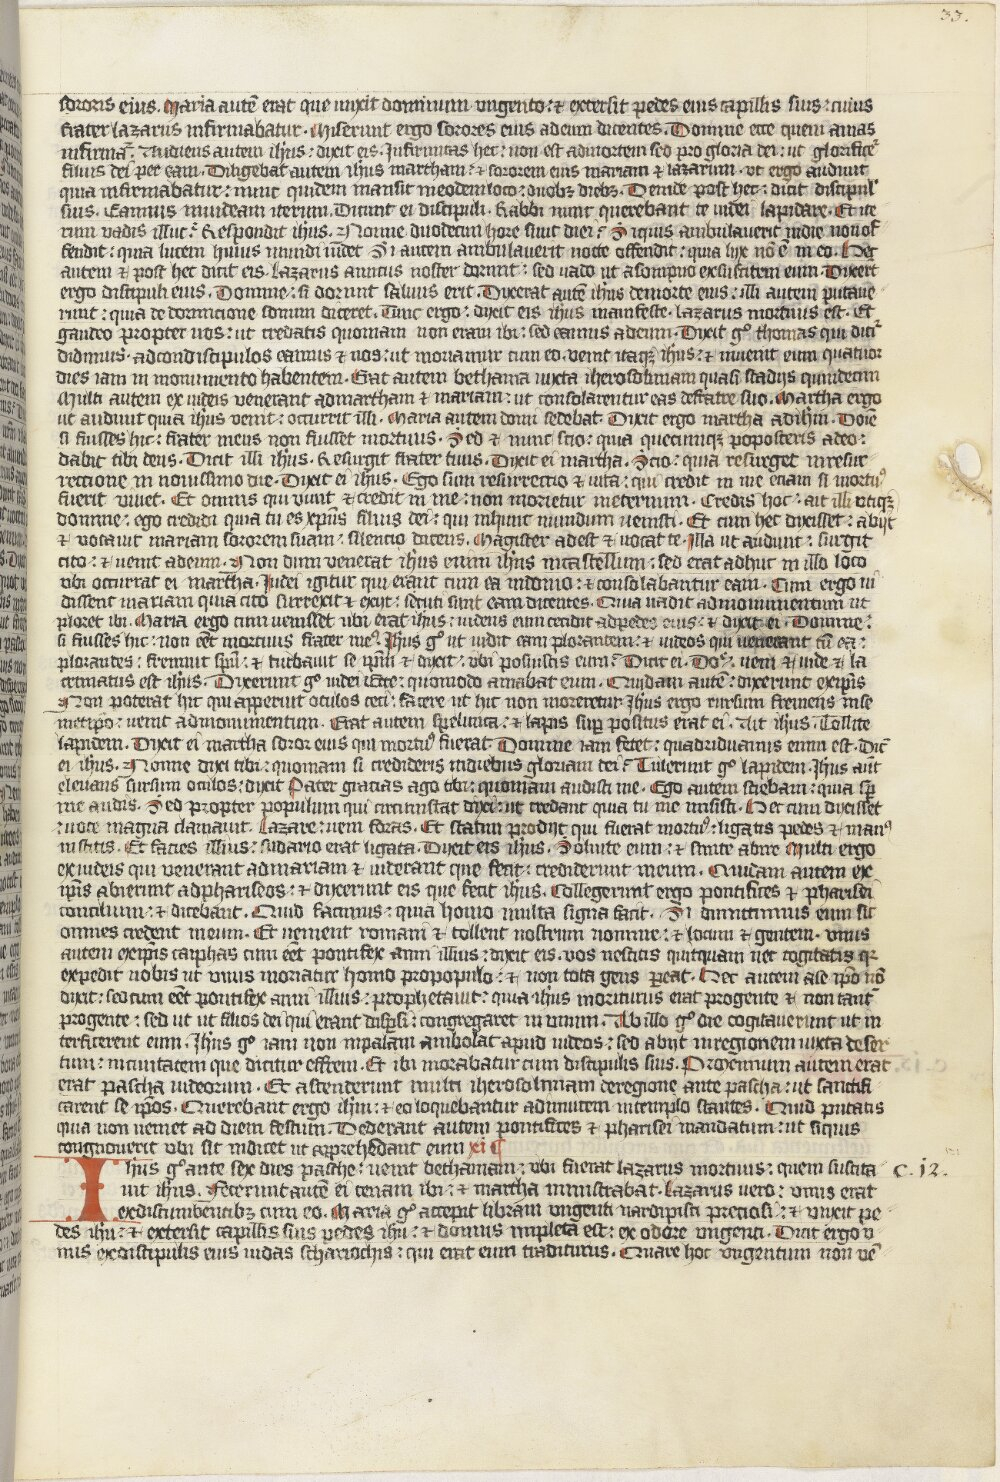 33.
sororis eius. Maria autē erat que unxit dominum vngento: ⁊ extersit pedes eius capillis suis: cuius
frater lazarus infirmabatur. Miserunt ergo sorores eius adeum dicentes. Domine ecce quem amas
infirmaꝉ. Audiens autem ih̄us: dixit eis. Infirmitas hec: non est admortem sed pro gloria dei: ut glorificeꝉ
filius dei per eam. Diligebat autem ih̄us martham: ⁊ sororem eius mariam ⁊ lazarum. ut ergo audiuit
quia infirmabatur: nunc quidem mansit ineodem loco: duobꝫ diebꝫ. Deinde post hec: dicit discipul'
suis. Eamus iniudeam iterum. Dicunt ei discipuli. Rabbi nunc querebant te iudei lapidare. Et ite
rum vadis illuc? Respondit ih̄us. Nonne duodecim hore sunt diei? Si quis ambulauerit indie non of
fendit: quia lucem huius mundi uidet Si autem ambulauerit nocte offendit: quia lux nō ē in eo. Hec
autem ⁊ post hec dicit eis. Lazarus amicus noster dormit: sed vado ut asompno exsuscitem eum. Dixert
ergo discipuli eius. Domine: si dormit saluus erit. Dixerat autē ih̄us demorte eius: illi autem putaue
runt: quia de dormicione sompni diceret. Tunc ergo: dixit eis ih̄us manifeste. lazarus mortuus est. Et
gaudeo propter uos: ut credatis quoniam non eram ibi: sed eamus adeum. Dixit gͦ thomas qui diciꝉ
didimus. adcondiscipulos eamus ⁊ nos: ut moriamur cum eo. venit itaqꝫ ih̄us: ⁊ inuenit eum quatuor
dies iam in monumento habentem. Erat autem bethania iuxta iherosolimam quasi stadijs quindecim
Multi autem ex iudeis venerant admartham ⁊ mariam: ut consolarentur eas defratre suo. Martha ergo
ut audiuit quia ih̄us venit: occurrit illi. Maria autem domi sedebat. Dixit ergo martha adih̄m. Dōie
si fuisses hic: frater meus non fuisset mortuus. Sed ⁊ nunc scio: quia quecumqꝫ poposceris adeo:
dabit tibi deus. Dicit illi ih̄us. Resurgit frater tuus. Dixit ei martha. Scio: quia resurget inresur
rectione in nouissimo die. Dixit ei ih̄us. Ego sum resurrectio ⁊ uita: qui credit in me etiam si mortuꝰ
fuerit viuet. Et omnis qui viuit ⁊ credit in me: non morietur ineternum. Credis hoc: ait illi vtiqꝫ
domine: ego credidi quia tu es xp̄us filius dei: qui inhunc mundum uenisti. Et cum hec dixisset: abijt
⁊ vocauit mariam sororem suam: silencio dicens. Magister adest ⁊ uocat te. Illa ut audiuit: surgit
cito: ⁊ uenit adeum. Non dum venerat ih̄us enim ih̄us incastellum: sed erat adhuc in illo loco
vbi occurrat ei martha. Judei igitur qui erant cum ea indomo: ⁊ consolabantur eam. Cum ergo ui
dissent mariam quia cito surrexit ⁊ exijt: secuti sunt eam dicentes. Quia uadit admonumentum ut
ploret ibi. Maria ergo cum uenisset ubi erat ih̄us: uidens eum cecidit adpedes eius: ⁊ dixit ei. Domine:
si fuisses hic: non eēt mortuus frater meꝰ. Ih̄us gͦ ut uidit eam plorantem: ⁊ iudeos qui venerant cū ea:
plorantes: fremuit sp̄u: ⁊ turbauit se ip̄m ⁊ dixit: vbi posuistis eum? Dicit ei. Dōe. veni ⁊ uide ⁊ la
crimatus est ih̄us. Dixerunt gͦ iudei: quomodo amabat eum. Quidam autē: dixerunt exip̄is
Non poterat hic qui apperuit oculos ceci: facere ut hic non moreretur: Ih̄us ergo rursum fremens inse
metip̄o: uenit admonumentum. Erat autem spelunca: ⁊ lapis suꝑ positus erat ei. Ait ih̄us. Tollite
lapidem. Dixit ei martha soror eius qui mortuꝰ fuerat Domine iam fetet: quadriduanus enim est. Dic̄
ei ih̄us. Nonne dixi tibi: quoniam si credideris uidebis gloriam dei? Tulerunt gͦ lapidem. Ih̄us aūt
eleuatis sursum oculos: dixit Pater gracias ago tibi: quoniam audisti me. Ego autem sciebam: quia sp̄
me audis. Sed propter populum qui circumstat dixi: ut credant quia tu me misisti. Hec cum dixisset
: uoce magna clamauit. Lazare: ueni foras. Et statim prodijt qui fuerat mortuꝰ: ligatis pedes ⁊ manꝰ
institis. Et facies illius: sudario erat ligata. Dixit eis ih̄us. Soluite eum: ⁊ sinite abire Multi ergo
ex iudeis qui venerant admariam ⁊ uiderant que fecit: crediderunt ineum. Quidam autem ex
ip̄is abierunt adphariseos: ⁊ dixerunt eis que fecit ih̄us. Collegerunt ergo pontifices ⁊ pharisei
concilium: ⁊ dicebant. Quid facimus: quia homo multa signa facit. Si dimittimus eum sic
omnes credent ineum. Et uenient romani ⁊ tollent nostrum nomine: ⁊ locum ⁊ gentem. vnus
autem exip̄is caiphas cum eēt pontifex anni illius: dixit eis. vos nescitis quitquam nec cogitatis qꝛ
expedit uobis ut vnus moriatur homo propopulo: ⁊ non tota gens ꝑeat. Hec autem ase ip̄o nō
dixit: sed cum eēt pontifex anni illius: prophetauit: quia ih̄us moriturus erat progente ⁊ non tantū
progente: sed ut ut filios dei qui erant disꝑsi: congregaret in vnum. Ab illo gͦ die cogitauerunt ut in
terficerent eum. Ih̄us gͦ iam non inpalam ambolat apud iudeos: sed abijt inregionem iuxta deser
tum: inciuitatem que dicitur effrem. Et ibi morabatur cum discipulis suis. Proximum autem erat
erat pascha iudeorum. Et ascenderunt multi iherosolimam deregione ante pascha: ut sanctifi
carent se ip̄os. Querebant ergo ih̄m: ⁊ coloquebantur adinuicem intemplo stantes. Quid putatis
quia non ueniet ad diem festum. Dederant autem pontifices ⁊ pharisei mandatum: ut siquis
congnouerit vbi sit indicet ut apprehēdant eum xi C
Ih̄us gͦ ante sex dies pasche: uenit bethaniam: vbi fuerat lazarus mortuus: quem suscita c. 12.
uit ih̄us. Fecerunt autē ei cenam ibi: ⁊ martha ministrabat. Lazarus uero: vnus erat
exdiscumbentibꝫ cum eo. Maria gͦ accepit libram ungenti nardipisti preciosi: ⁊ vnxit pe
des ih̄u: ⁊ extersit capillis suis pedes ih̄u: ⁊ domus impleta est: ex odore vngenti. Dicit ergo v
nus exdiscipulis eius iudas schariothis: qui erat eum traditurus. Quare hoc vngentum non vē